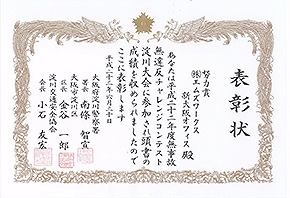 表彰状
努力賞
㈱エムズワークス
新大阪オフィス 殿
あなたは平成二十二年度無事故
無違反チャレンジコンテスト
淀川大会に参加され頭書の
成績を収められましたので
ここに表彰します
平成二十三年六月三十日
大阪府淀川警察署
署長 南條 智宣
大阪市淀川区
区長 金谷 一郎
淀川交通安全協会
会長 小石 友宏